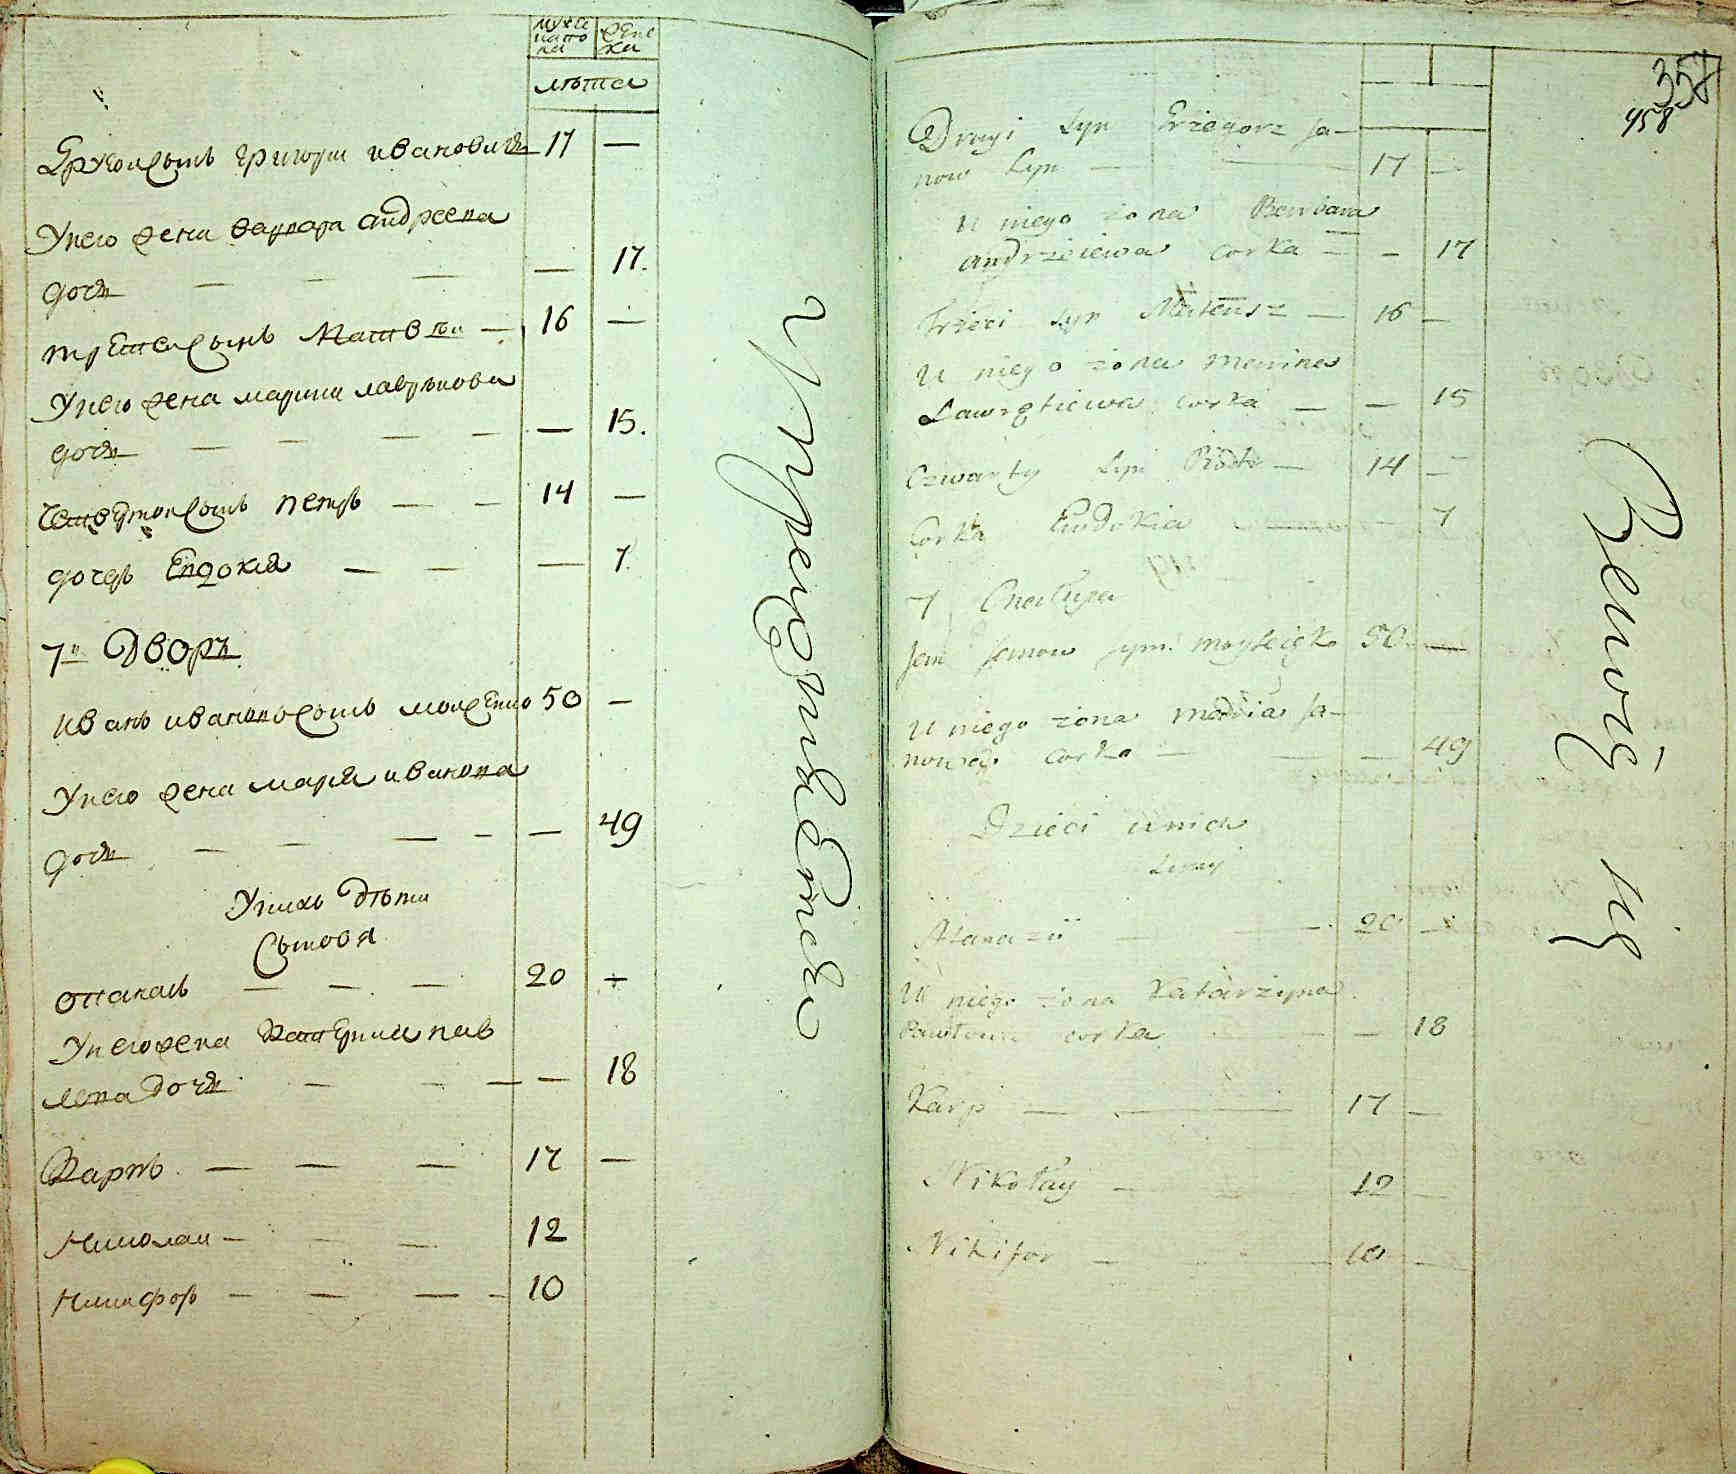 мужеска пола женска
лѣта
Другои сынъ григори ивановичь 17 —
У него жена варвара андреева
дочь — — — — 17.
третеи сынъ Матвѣи — 16 —
У него жена марина лаврѣнова
дочь — — — — — 15.
четвертои сынъ петръ — — 14 —
дочерь Евдокия — — — 7.
7й Дворъ
Иванъ ивановъ сынъ 50 —
У него жена маря иванова
дочь — — — — — 49
У нихъ дѣти
Сыновя
Опанасъ — — — 20 —
У него жена Катерина пав
лова дочь — — — — 18
Карпъ — — — 17 —
Николаи — — — 12
Никифоръ — — — — 10
357
458
Drugi Syn Grzegorz Ja-
now Syn — — 17 —
U niego żona Barbara
Andrzeiewa corka — — 17
Trzeci Syn Mateusz — 16 —
U niego żona Maryna
Lawrętiewa corka — — 15
Czwarty Syn Piotr — 14 —
Corka Eudokia — — 7
7 Chałupa
Jan Janow syn 50 —
U niego żona Ja-
nowa corka — — — 49
Dzieci u nich
Synij
Atanazii — — 20 —
U niego żona Katarzyna
Pawłowa corka — — 18
Karp — — — 17 —
Nikołay — — 12 —
Nikifor — — 10 —